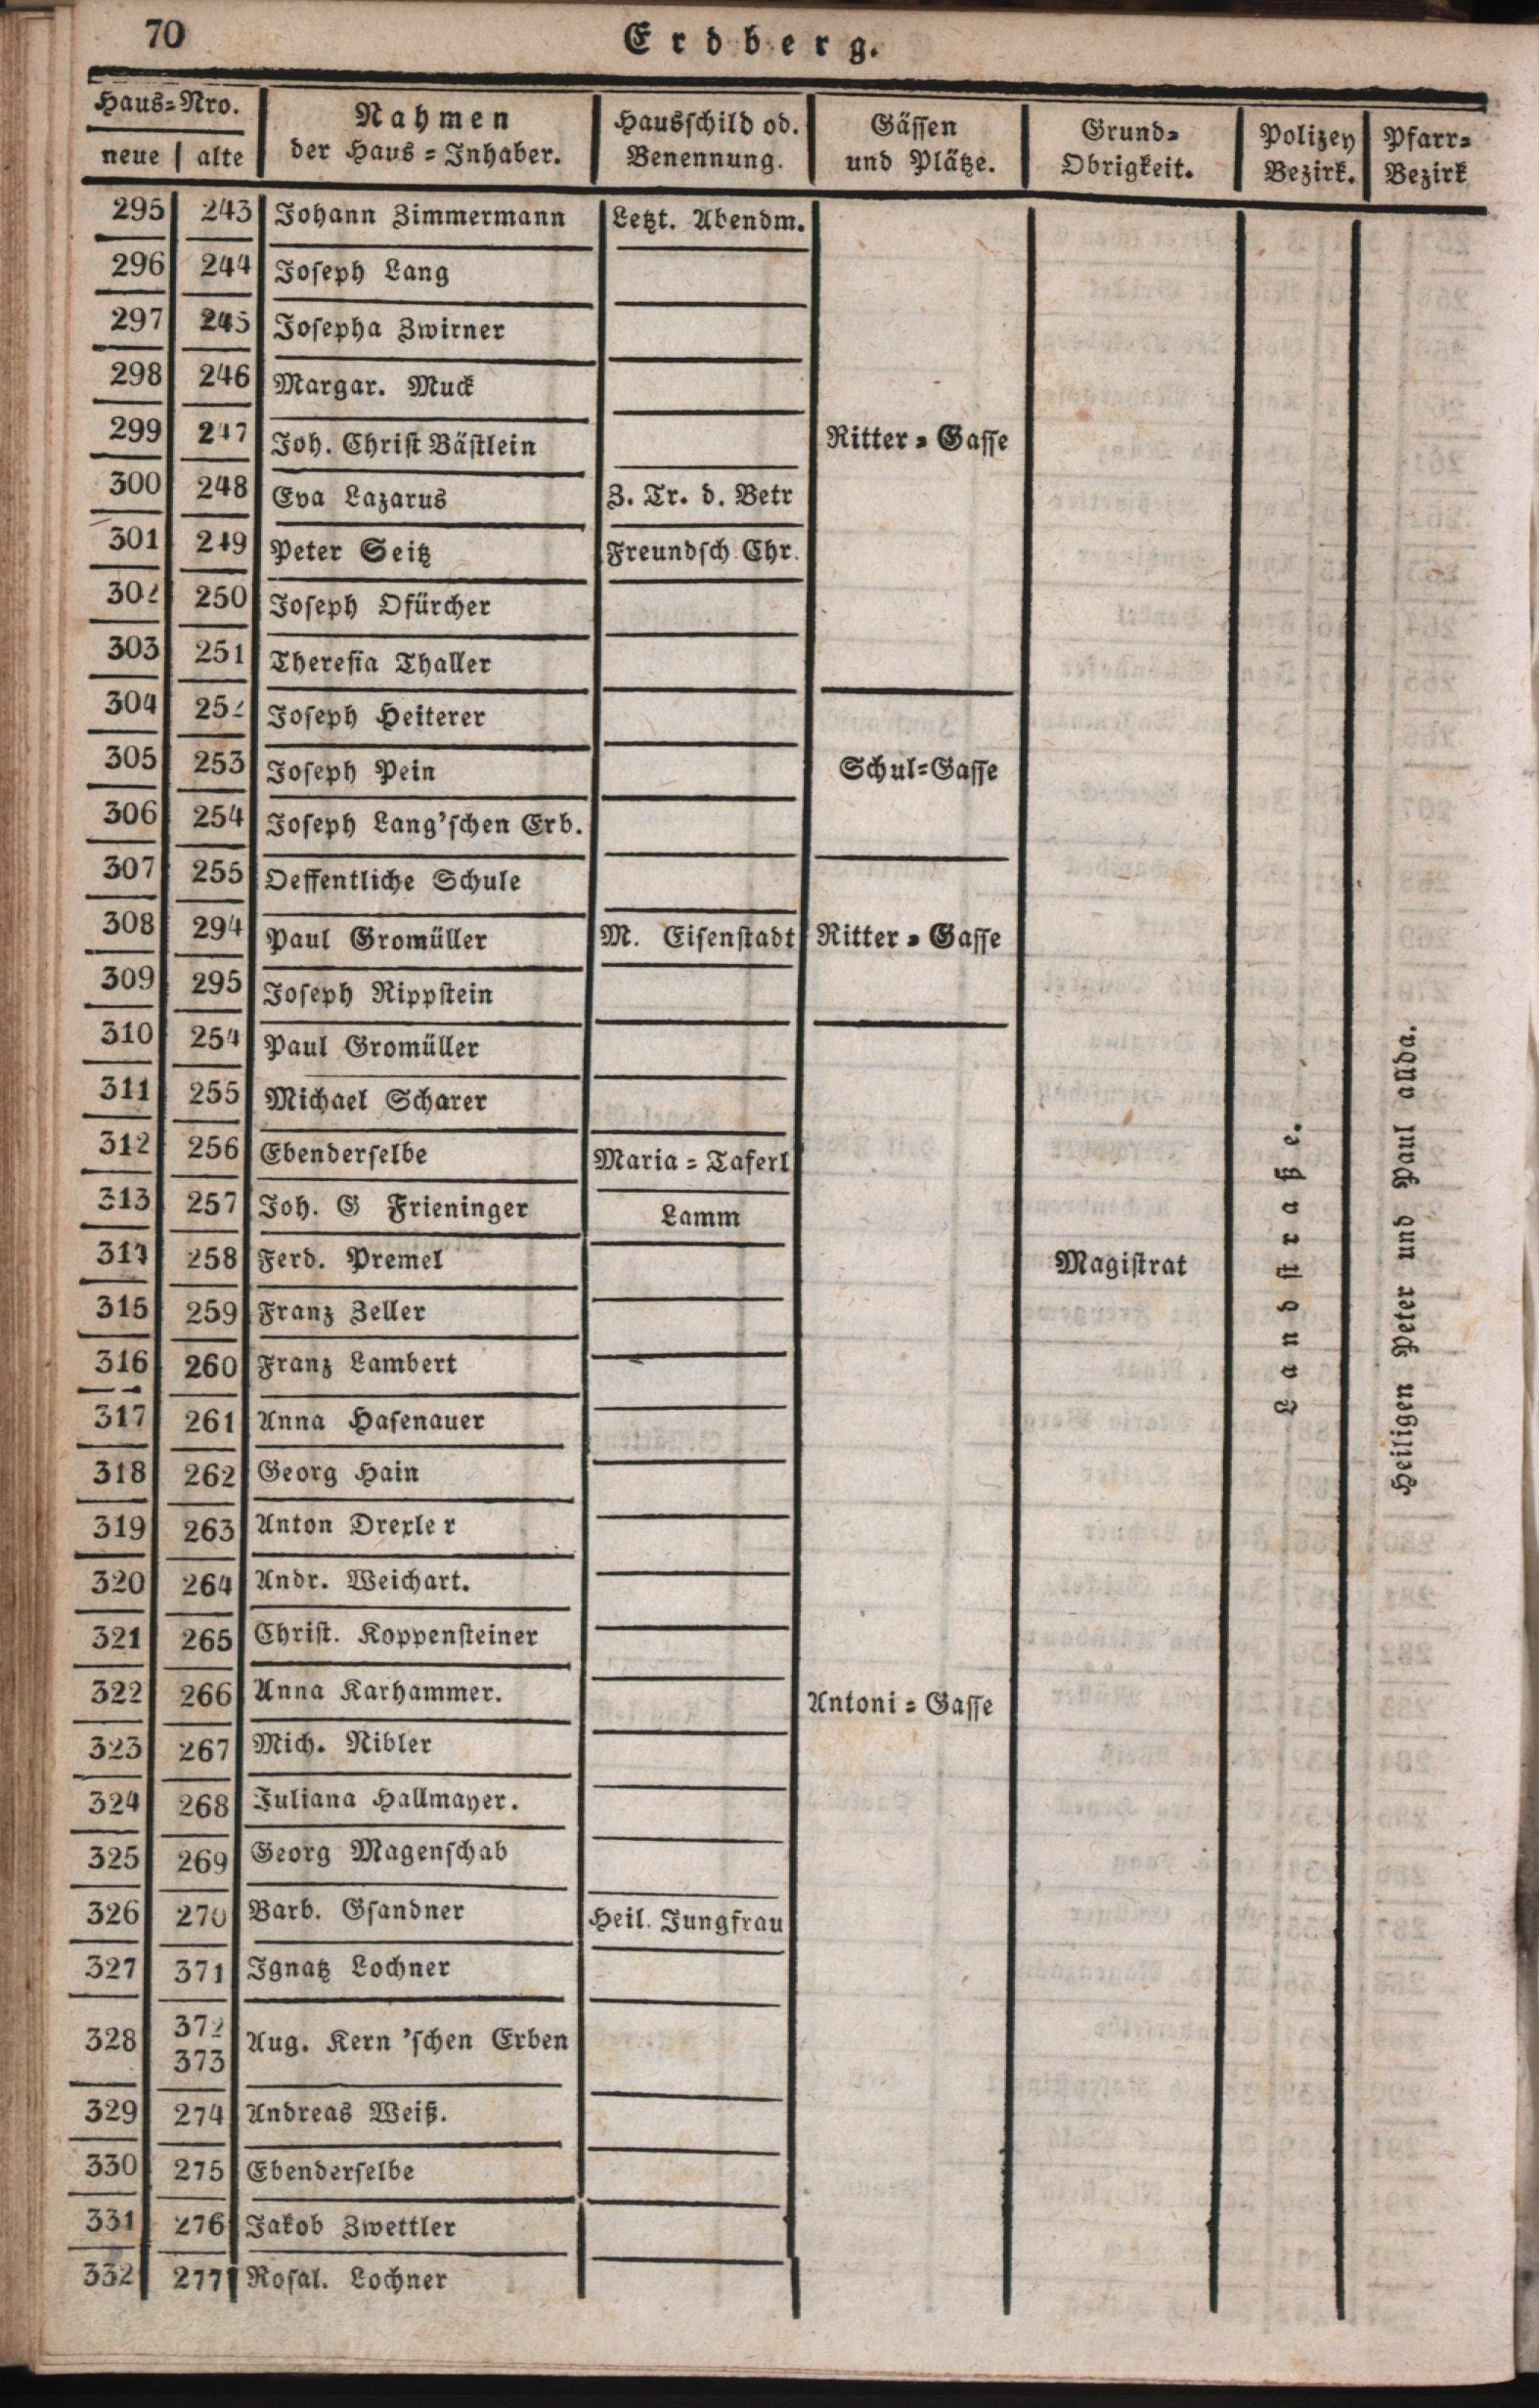 70 Erdberg.
Haus=Nro. Nahmen Hausschild od. Gässen Grund= Polizey Pfarr=
neue alte der Haus=Inhaber. Benennung. und Plätze. Obrigkeit. Bezirk. Bezirk
295 243 Johann Zimmermann Letzt. Abendm.
296 244 Joseph Lang
297 245 Josepha Zwirner
298 246 Margar. Muck
299 247 Joh. Christ Bästlein Ritter=Gasse
300 248 Eva Lazarus Z. Tr. d. Betr
301 249 Peter Seitz Freundsch Chr.
302 250 Joseph Ofürcher
303 251 Theresia Thaller
304 252 Joseph Heiterer
305 253 Joseph Pein Schul=Gasse
306 254 Joseph Lang'schen Erb.
307 255 Oeffentliche Schule
308 294 Paul Gromüller M. Eisenstadt Ritter=Gasse
309 295 Joseph Rippstein
310 254 Paul Gromüller
311 255 Michael Scharer
312 256 Ebenderselbe Maria=Taferl
313 257 Joh. G Frieninger Lamm
314 258 Ferd. Premel Magistrat
315 259 Franz Zeller
316 260 Franz Lambert
317 261 Anna Hasenauer
318 262 Georg Hain
319 263 Anton Drexler
320 264 Andr. Weichart.
321 265 Christ. Koppensteiner
322 266 Anna Karhammer. Antoni=Gasse
323 267 Mich. Nibler
324 268 Juliana Hallmayer.
325 269 Georg Magenschab
326 270 Barb. Gsandner Heil. Jungfrau
327 371 Ignatz Lochner
328 372 373 Aug. Kern'schen Erben
329 274 Andreas Weiß.
330 275 Ebenderselbe
331 276 Jakob Zwettler
332 277 Rosal. Lochner
Landstraße.
Heiligen Peter und Paul allda.